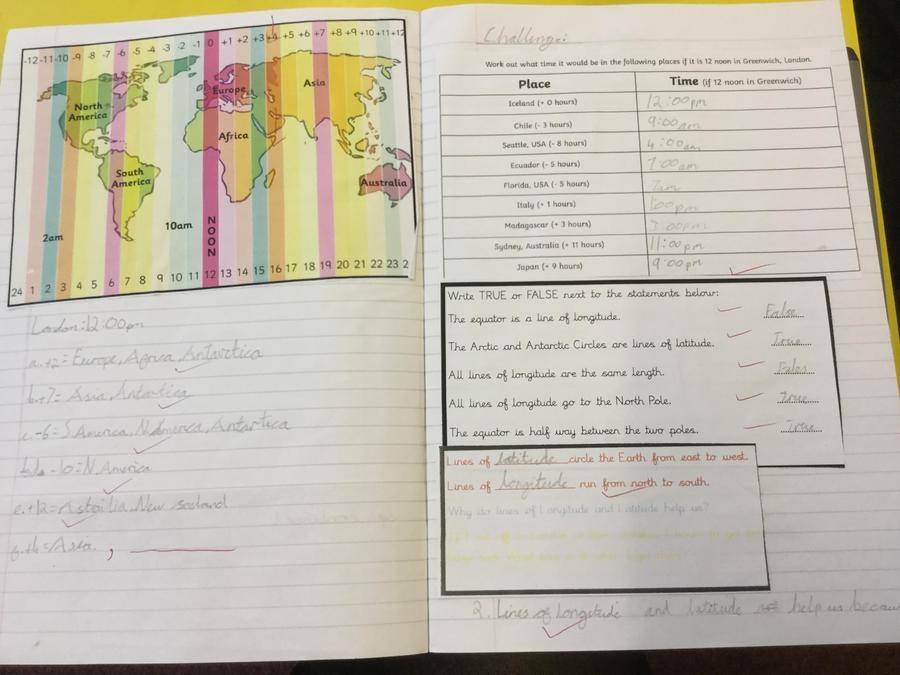 -12 -11 -10 -9 -8 -7 -6 -5 -4 -3 -2 -1 0 +1 +2 +3 +4 +5 +6 +7 +8 +9 +10 +11 +12
North America
Europe
Asia
Africa
South America
Australia
2am
10am
NOON
24 1 2 3 4 5 6 7 8 9 10 11 12 13 14 15 16 17 18 19 20 21 22 23 2
London: 12:00pm
a. +2 = Europe, Africa, Antarctica
b. +7 = Asia, Antartica
c. -6 = S America, N America, Antartica
-10 = N America
e. +12 = New
= Asia,
Challenge:
Work out what time it would be in the following places if it is 12 noon in Greenwich, London.
Place Time (if 12 noon in Greenwich)
Iceland (+ 0 hours) 12:00pm
Chile (- 3 hours) 9:00am
Seattle, USA (- 8 hours) 4:00am
Ecuador (- 5 hours) 7:00am
Florida, USA (- 5 hours) 7am
Italy (+ 1 hours) 1:00pm
Madagascar (+ 3 hours) 3:00pm
Sydney, Australia (+ 11 hours) 11:00pm
Japan (+ 9 hours) 9:00pm
Write TRUE or FALSE next to the statements below:
The equator is a line of longitude. False
The Arctic and Antarctic Circles are lines of latitude. True
All lines of longitude are the same length. Fales
All lines of longitude go to the North Pole. True
The equator is half way between the two poles. True
Lines of latitude circle the Earth from east to west.
Lines of longitude run from north to south.
Why do lines of longitude and latitude help us?
2. Lines of longitude and latitude help us becau